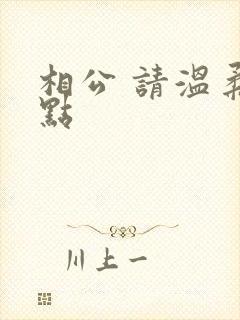 相公 請溫柔
點
川上一